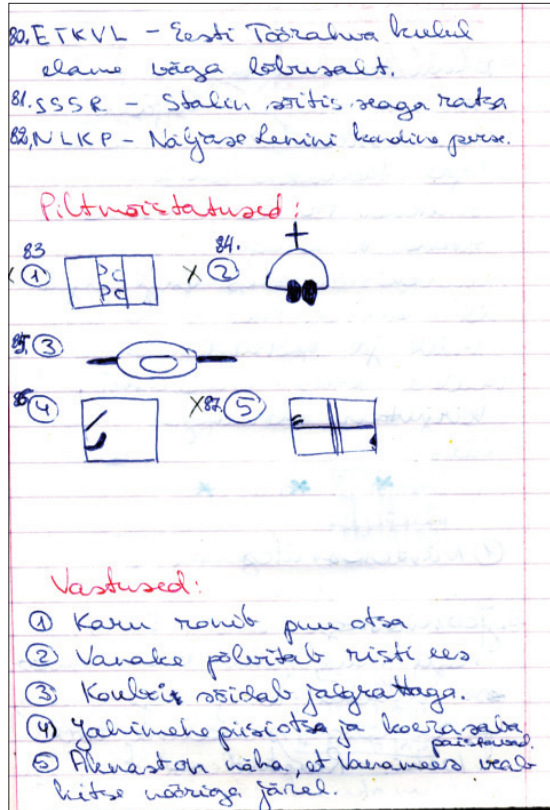 80. ETKVL – Eesti Töörahwa kulul
elame väga lõbusalt.
81. SSSR – Stalin sõitis seaga ratsa
82. NLKP – Näljase Lenini kondine perse.
Piltmõistatused:
83 84.
x ① x ②
85. ③
86 ④ x 87. ⑤
Vastused:
① Karu ronib puu otsa
② Vanake põlvitab risti ees
③ Koubõi sõidab jalgrattaga.
④ Jahimehe püssiots ja koerasaba
paistavad.
⑤ Aknast on näha, et Vanamees veab
kitse nööriga järel.